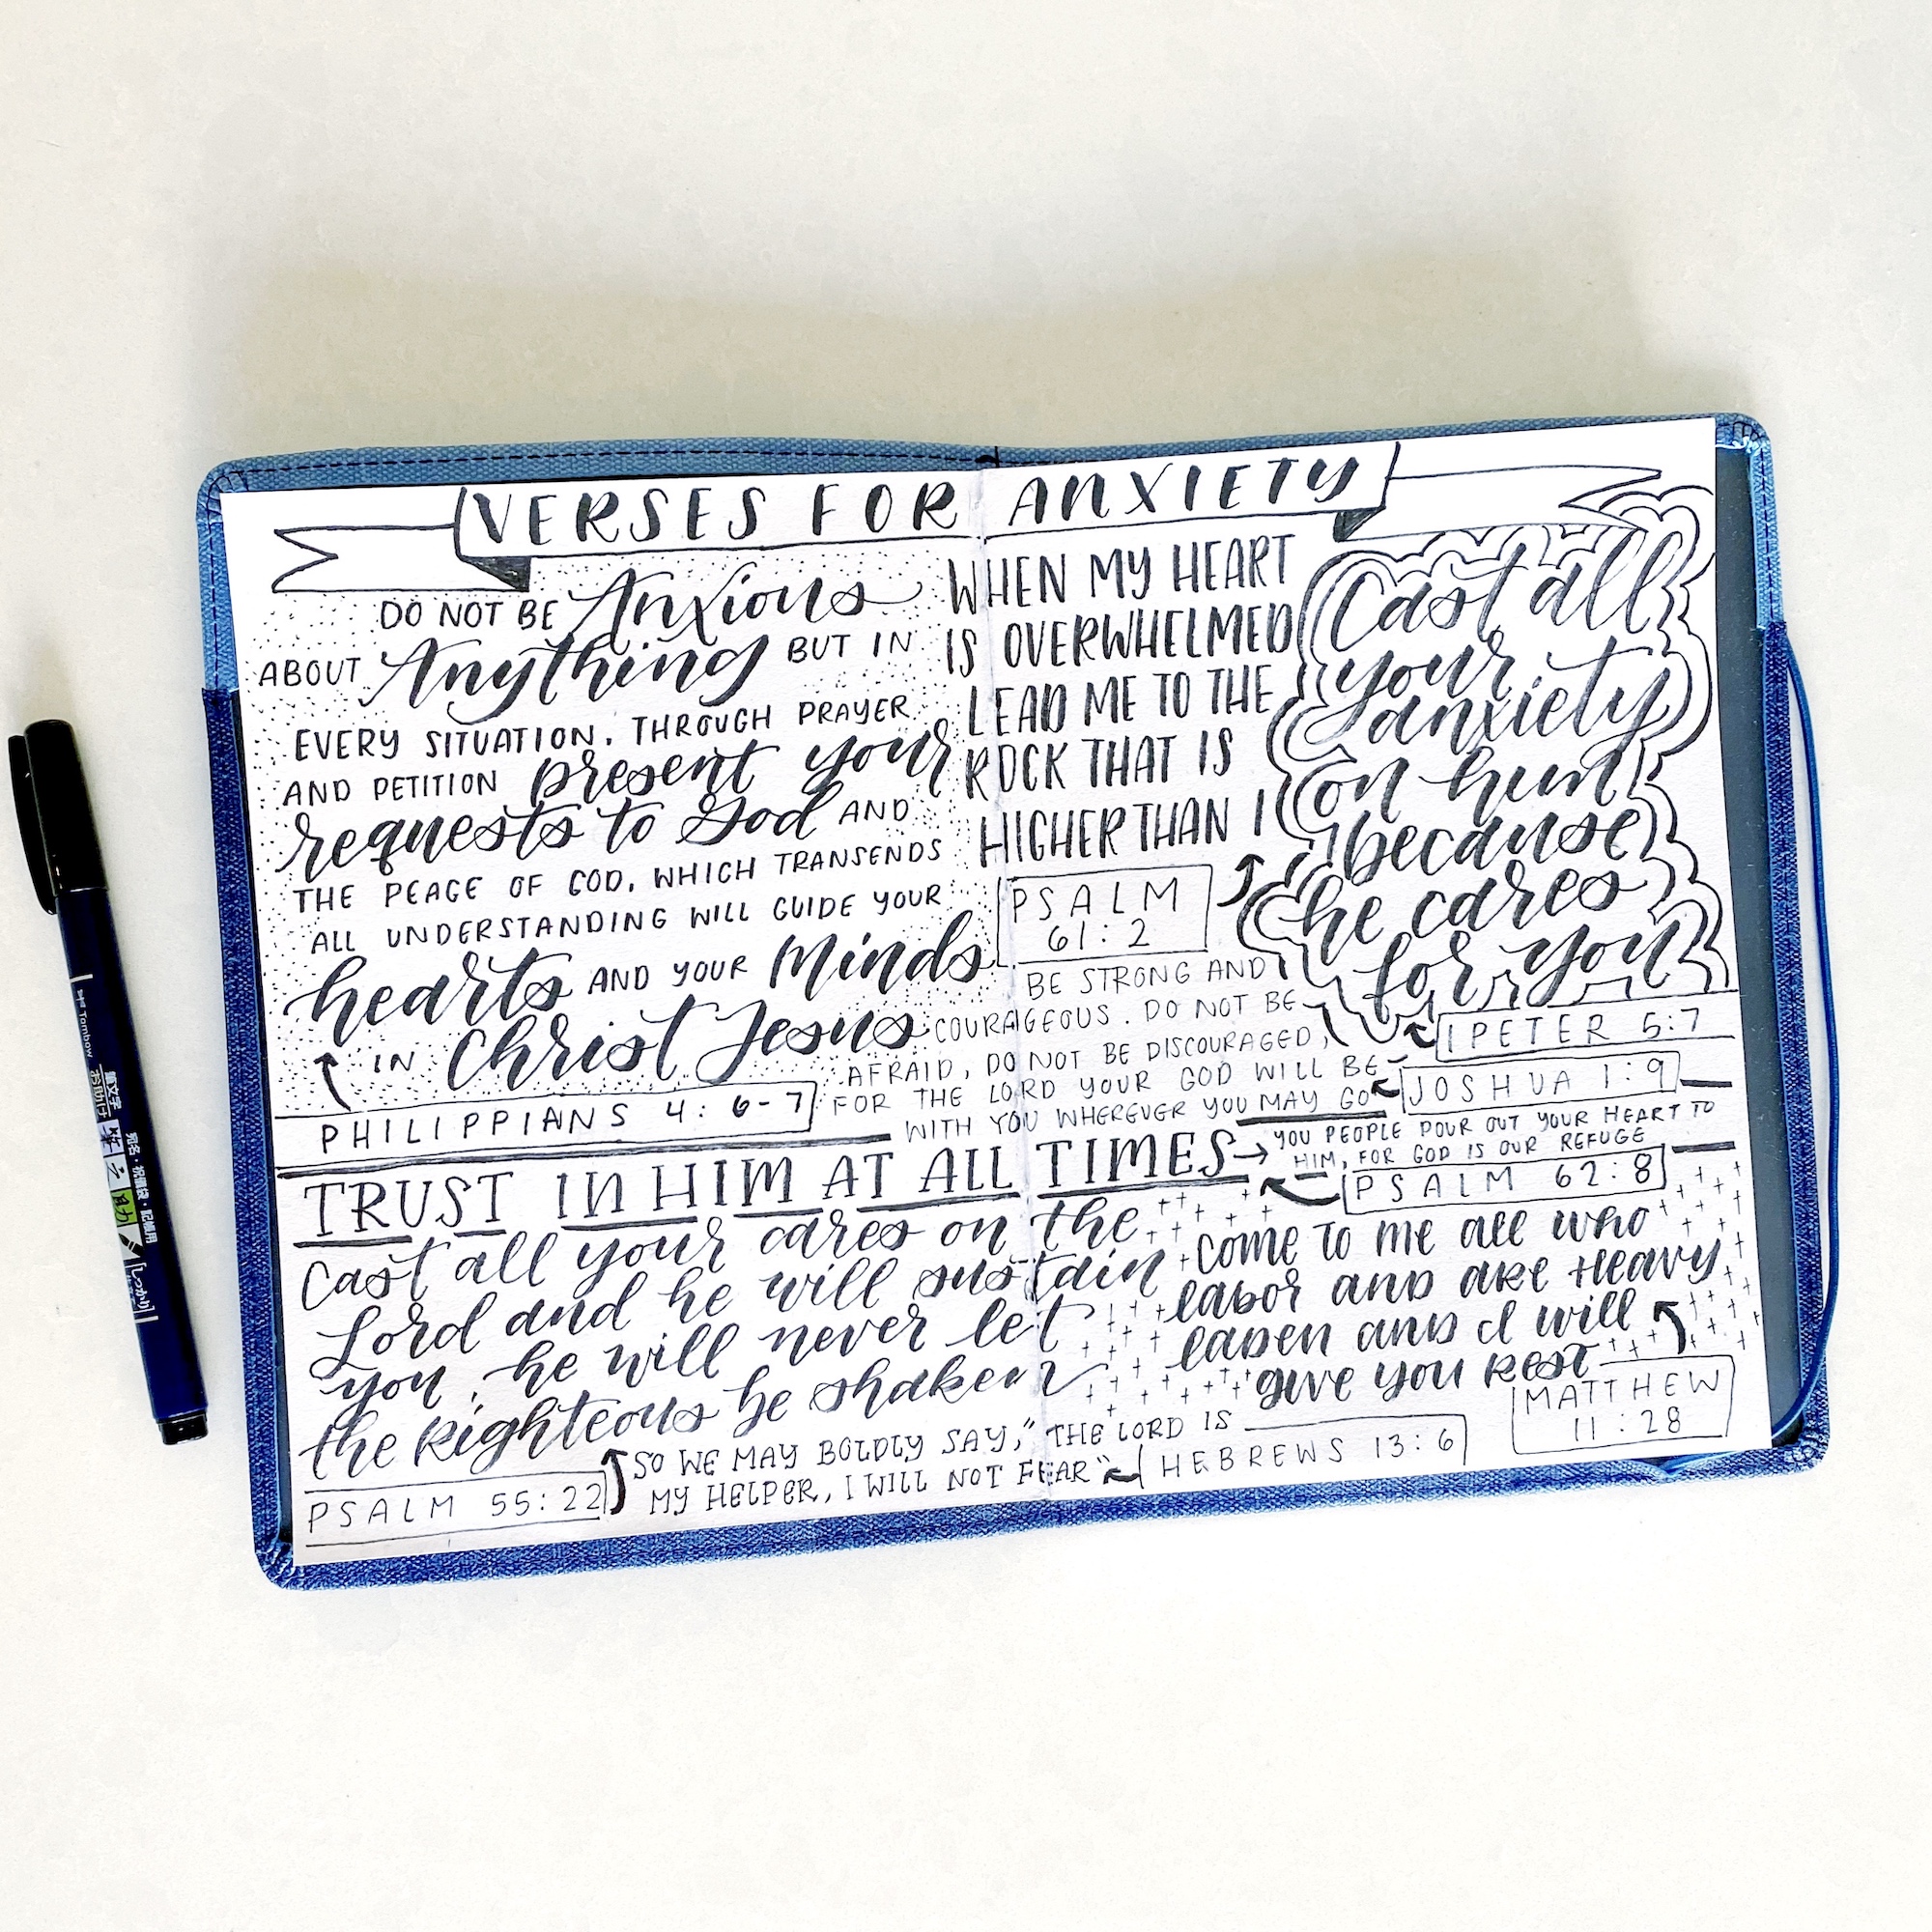 VERSES FOR ANXIETY
DO NOT BE Anxious
ABOUT Anything BUT IN
EVERY SITUATION, THROUGH PRAYER
AND PETITION present your
requests to God AND
THE PEACE OF GOD, WHICH TRANSENDS
ALL UNDERSTANDING WILL GUIDE YOUR
hearts AND YOUR Minds
IN Christ Jesus
PHILIPPIANS 4:6-7
WHEN MY HEART
IS OVERWHELMED
LEAD ME TO THE
ROCK THAT IS
HIGHER THAN I
PSALM
61:2
Cast all
your
anxiety
on him
because
he cares
for you
1 PETER 5:7
BE STRONG AND
COURAGEOUS. DO NOT BE
AFRAID, DO NOT BE DISCOURAGED,
FOR THE LORD YOUR GOD WILL BE
WITH YOU WHEREVER YOU MAY GO
JOSHUA 1:9
TRUST IN HIM AT ALL TIMES
YOU PEOPLE POUR OUT YOUR HEART TO
HIM, FOR GOD IS OUR REFUGE
PSALM 62:8
Cast all your cares on the
Lord and he will sustain
you, he will never let
the righteous be shaken
PSALM 55:22
COME TO ME All WHO
LABOR AND ARE HEAVY
LADEN AND I will
give you REST
MATTHEW
11:28
SO WE MAY BOLDLY SAY, "THE LORD IS
MY HELPER, I WILL NOT FEAR"
HEBREWS 13:6
Tombow
筆文字
お助け
筆之助
宛名・祝儀袋・記帳用
しっかり